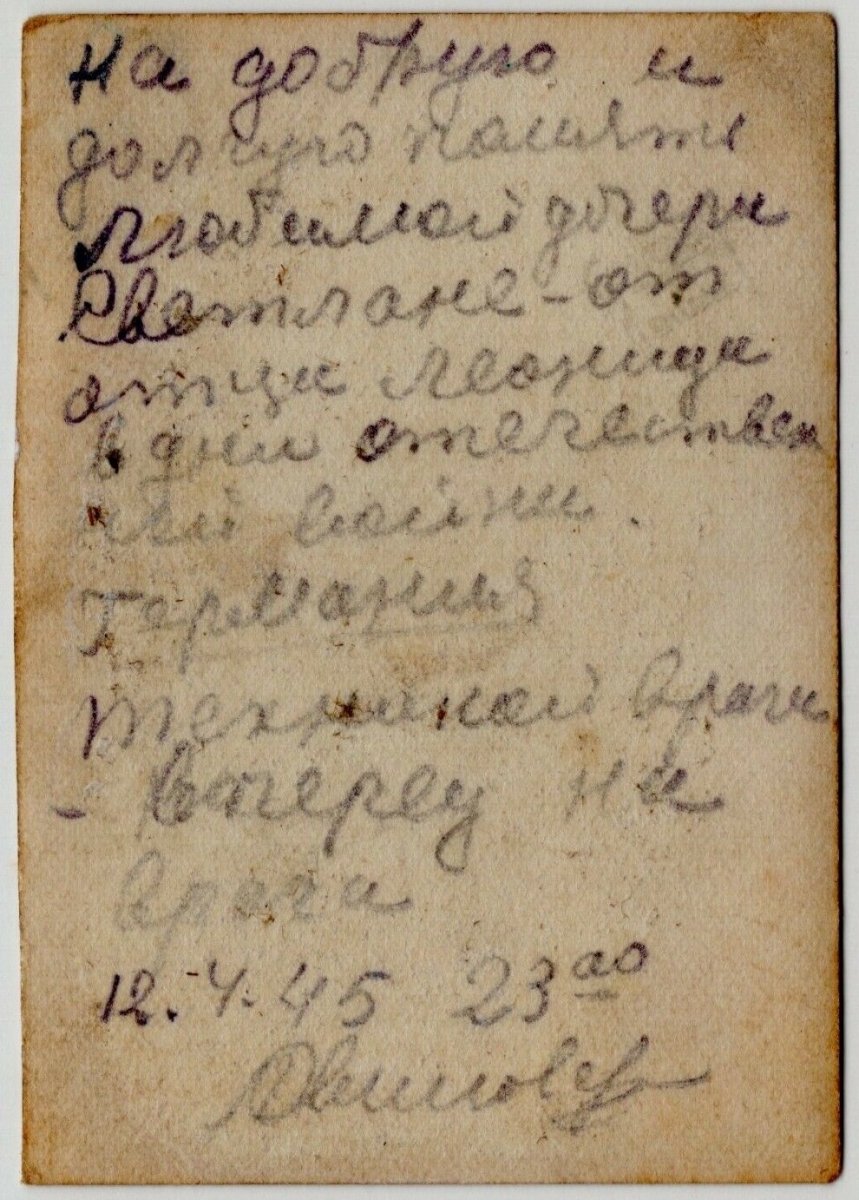 На добрую и
долгую память
любимой дочери
Светлане – от
отца Леонида
в дни отечествен
ной войны.
Германия
техникой врага
– вперед на
врага
12.4.45 23 00